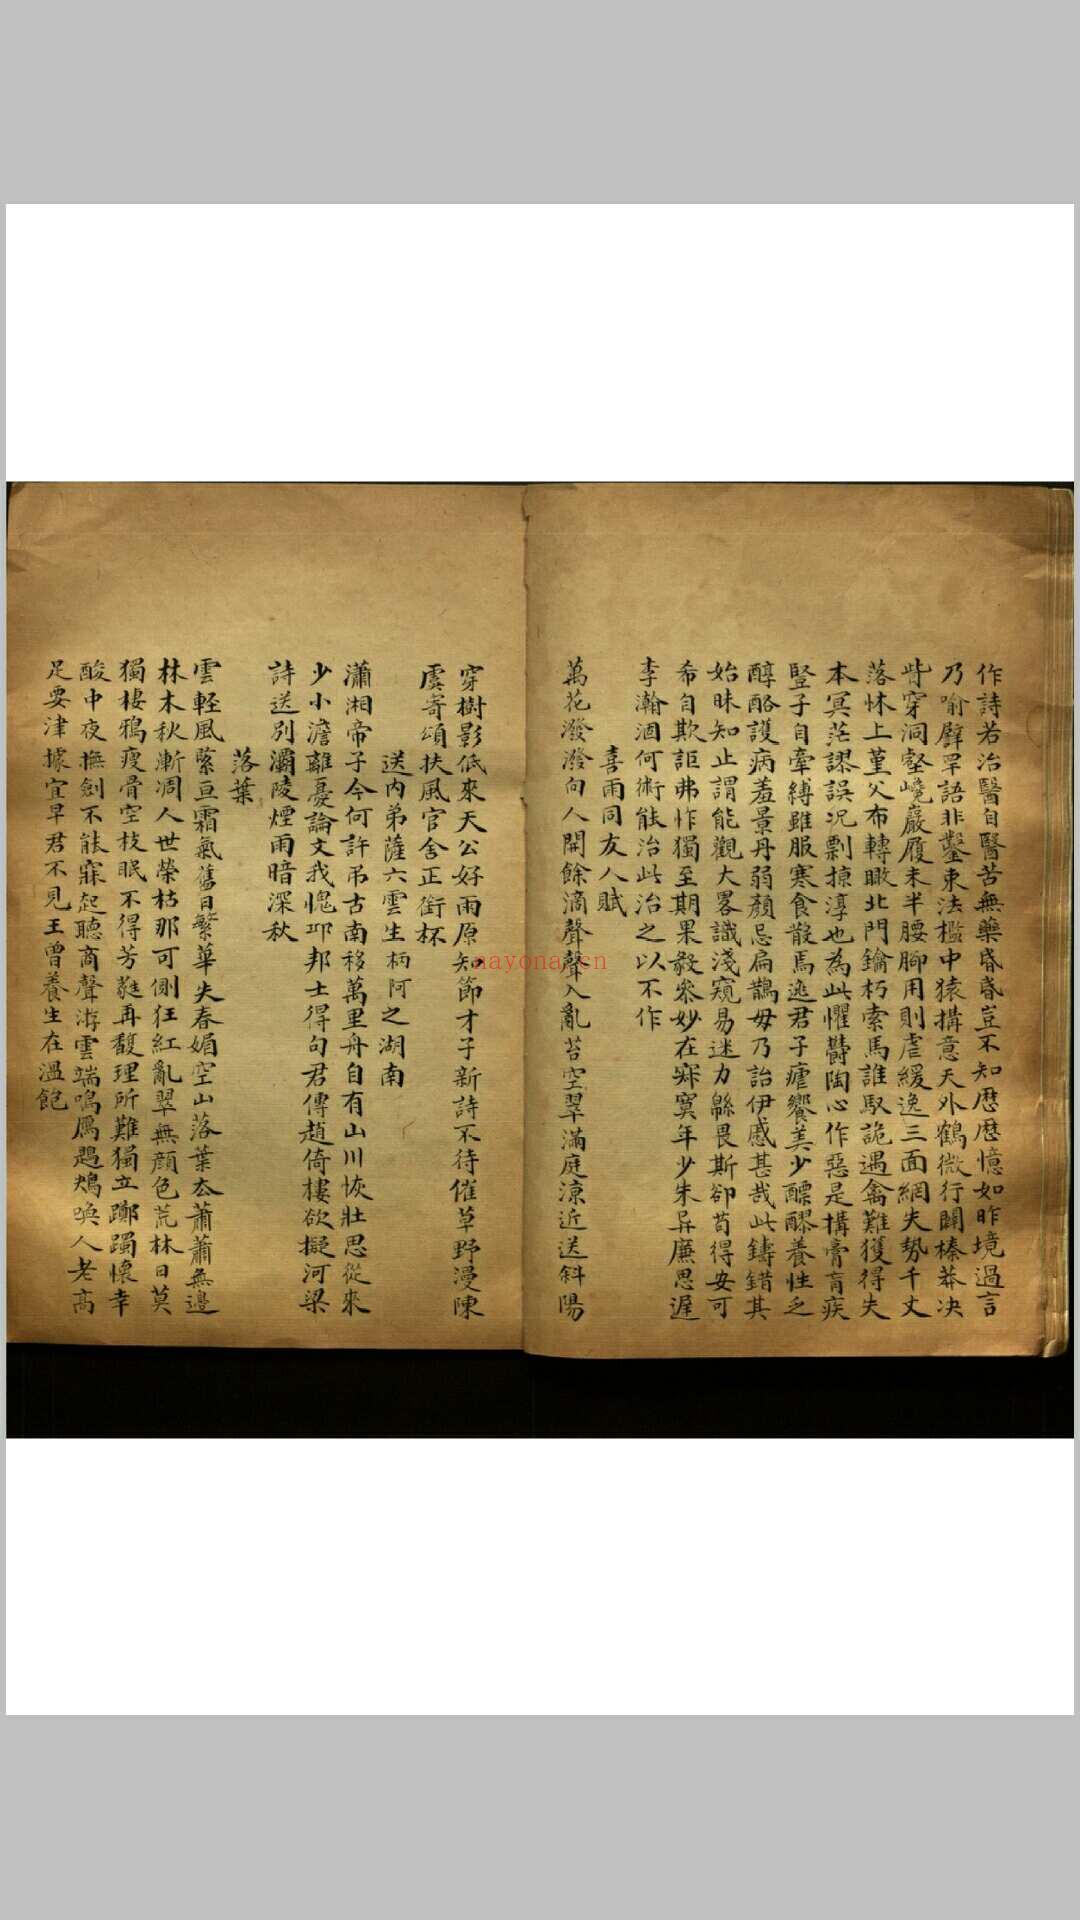 作詩若治醫自醫苦無藥昏昏豈不知歷歷憶如昨境過言
乃喻辟罕語非鑿束法檻中猿搆意天外鶴微行闢榛莽決
眥穿洞壑巉巖履未半腰腳用則虐緩逸三面網失勢千丈
落怵上堇父布轉瞰北門鑰朽索馬誰馭詭遇禽難獲得失
本冥茫謬誤況剽掠淳也為此懼鬱陶心作惡是搆膏肓疾
豎子自牽縛雖服寒食散焉逃君子瘧饗美少醲醪養性乏
醇酪護病羞景丹弱顏忌扁鵲毋乃詒伊慼甚哉此鑄錯其
始昧知止謂能觀大畧識淺窺易迷力緜畏斯卻苟得安可
希自欺詎弗怍獨至期果毅眾妙在寂寞年少朱异廉思遲
李瀚涸何術能治此治之以不作
喜雨同友人賦
萬花潑潑向人開餘滴聲聲入亂苔空翠滿庭涼近送斜陽
穿樹影低來天公好雨原知節才子新詩不待催草野漫陳
虞寄頌扶風官舍正銜杯
送內弟薩六雲生柄阿之湖南
瀟湘帝子今何許弔古南移萬里舟自有山川恢壯思從來
少小澹離憂論文我愧邛邦士得句君傳趙倚樓欲擬河梁
詩送別灞陵煙雨暗深秋
落葉
雲輕風緊亘霜氣舊日繁華失春媚空山落葉太蕭蕭無邊
林木秋漸凋人世榮枯那可側狂紅亂翠無顏色荒林日莫
獨棲鴉瘦骨空枝眠不得芳蕤再馥理所難獨立躑躅懷幸
酸中夜撫劍不能寐起聽商聲游雲端鳴鴈鶗鴂喚人老高
足要津據宜早君不見王曾養生在溫飽
nayona.cn